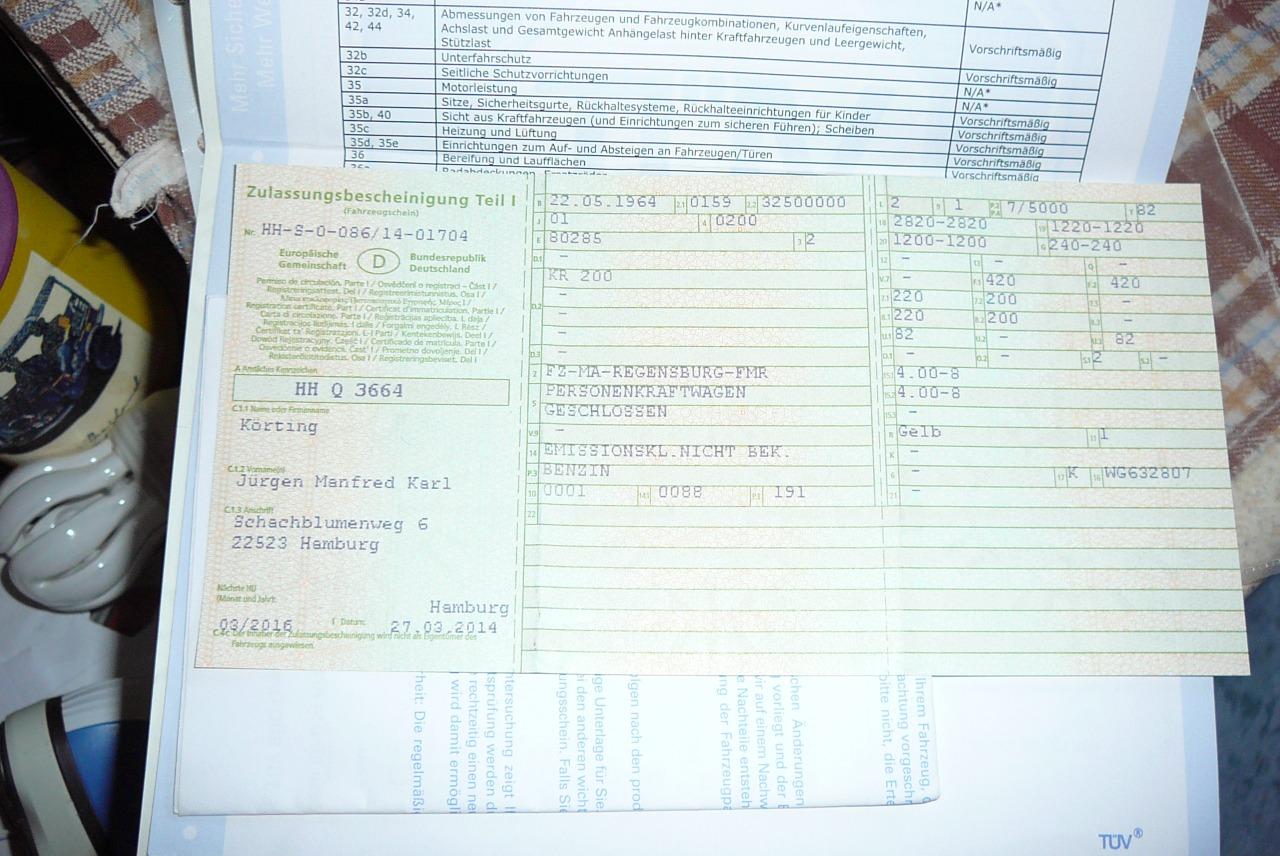 N/A*
32, 32d, 34, 42, 44 Abmessungen von Fahrzeugen und Fahrzeugkombinationen, Kurvenlaufeigenschaften, Achslast und Gesamtgewicht Anhängelast hinter Kraftfahrzeugen und Leergewicht, Stützlast Vorschriftsmäßig
32b Unterfahrschutz Vorschriftsmäßig
32c Seitliche Schutzvorrichtungen N/A*
35 Motorleistung N/A*
35a Sitze, Sicherheitsgurte, Rückhaltesysteme, Rückhalteeinrichtungen für Kinder Vorschriftsmäßig
35b, 40 Sicht aus Kraftfahrzeugen (und Einrichtungen zum sicheren Führen); Scheiben Vorschriftsmäßig
35c Heizung und Lüftung Vorschriftsmäßig
35d, 35e Einrichtungen zum Auf- und Absteigen an Fahrzeugen/Türen Vorschriftsmäßig
36 Bereifung und Laufflächen Vorschriftsmäßig
Mehr Siche
Mehr We
Zulassungsbescheinigung Teil I
(Fahrzeugschein)
Nr. HH-S-0-086/14-01704
Europäische Gemeinschaft D Bundesrepublik Deutschland
Permiso de circulación. Parte I / Osvědčení o registraci – Část I /
Registreringsattest. Del I / Registreerimistunnistus. Osa I /
Registration certificate. Part I / Certificat d'immatriculation. Partie I /
Carta di circolazione. Parte I / Reģistrācijas apliecība. I. daļa /
Registracijos liudijimas. I dalis / Forgalmi engedély. I. Rész /
Ċertifikat ta' Reġistrazzjoni. L-I Parti / Kentekenbewijs. Deel I /
Dowód Rejestracyjny. Część I / Certificado de matrícula. Parte I /
Osvedčenie o evidencii. Časť I / Prometno dovoljenje. Del I /
Rekisteröintitodistus. Osa I / Registreringsbeviset. Del I
A Amtliches Kennzeichen
HH Q 3664
C.1.1 Name oder Firmenname
Körting
C.1.2 Vorname(n)
Jürgen Manfred Karl
C.1.3 Anschrift
Schachblumenweg 6
22523 Hamburg
Nächste HU
(Monat und Jahr):
Hamburg
03/2016 I Datum: 27.03.2014
C.4c Der Inhaber der Zulassungsbescheinigung wird nicht als Eigentümer des
Fahrzeugs ausgewiesen.
B 22.05.1964 2.1 0159 2.2 32500000
J 01 4 0200
E 80285 3 2
D.1 –
KR 200
–
D.2 –
–
D.3 –
2 FZ-MA-REGENSBURG-FMR
5 PERSONENKRAFTWAGEN
GESCHLOSSEN
V.9 –
14 EMISSIONSKL.NICHT BEK.
P.3 BENZIN
10 0001 14.1 0088 P.1 191
22
L 2 9 1 P.2 P.4 7/5000 T 82
18 2820-2820 19 1220-1220
20 1200-1200 G 240-240
12 – 13 – Q –
V.7 – F.1 420 F.2 420
7.1 220 7.2 200 7.3 –
8.1 220 8.2 200 8.3 –
U.1 82 U.2 – U.3 82
O.1 – O.2 – S.1 2 S.2 –
15.1 4.00-8
15.2 4.00-8
15.3 –
R Gelb 11 1
K –
6 – 17 K 16 WG632807
21 –
heit: Die regelmäßi
wird damit ermögli
rechtzeitig einen ne
sprüfung werden d
ntersuchung zeigt I
ungsschein. Falls Sie
ei den anderen wicht
ige Unterlage für Sie.
olgen nach den prod
ng der Fahrzeugp
e Nachteile entsteh
wir auf einem Nachw
vorliegt und der
chen Änderungen
bitte nicht, die Erte
achtung vorgeschr
Ihrem Fahrzeug,
TÜV®